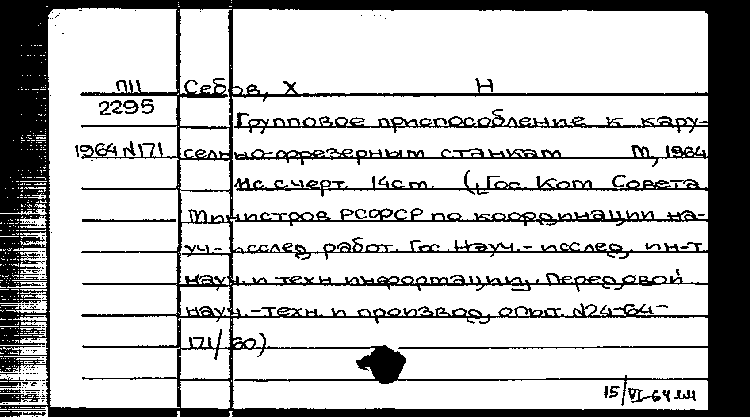 П11 Себов, Х Н
2295
Групповое приспособление к кару-
1964 N171 сельно-фрезерным станкам М, 1964
11с с черт. 14см. (Гос. Ком Совета
Министров РСФСР по координации на-
уч-исслед работ. Гос Науч.-исслед, ин-т
науч. и техн информации. Передовой
науч.-техн и производ, опыт N24-64-
171/60)
15/VI-64